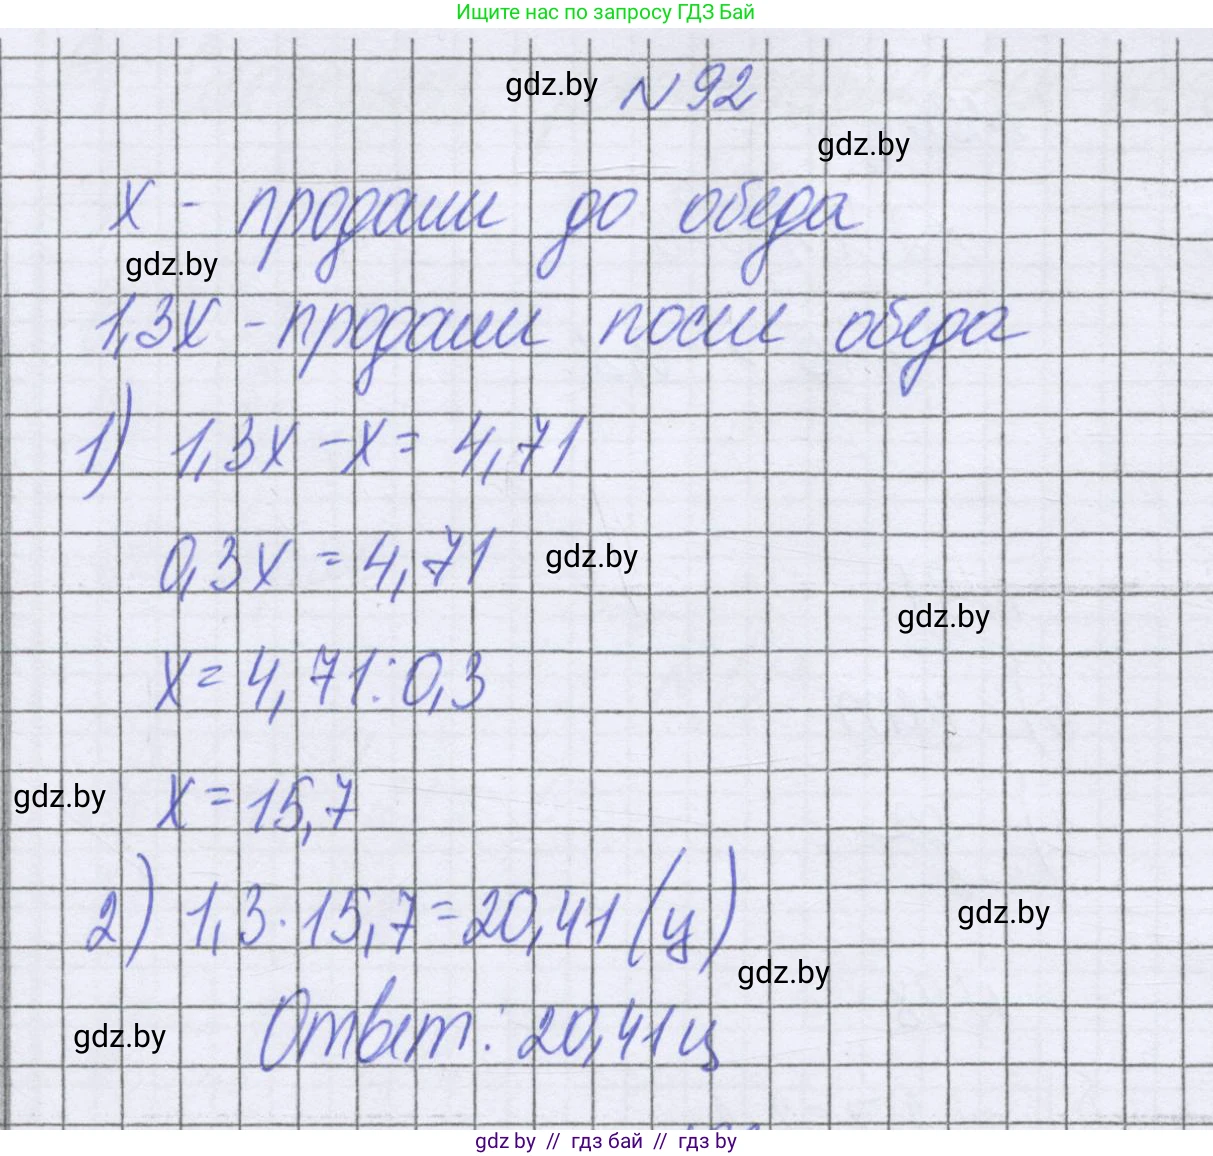 Ищите нас по запросу ГДЗ Бай
gdz.by № 92
gdz.by
х - продали до обеда
gdz.by
1,3х - продали после обеда
1) 1,3х - х = 4,71
0,3х = 4,71 gdz.by
gdz.by
х = 4,71 : 0,3
gdz.by х = 15,7
2) 1,3 · 15,7 = 20,41 (ц)
gdz.by
gdz.by
gdz.by Ответ: 20,41 ц
gdz by // гдз бай // гдз by